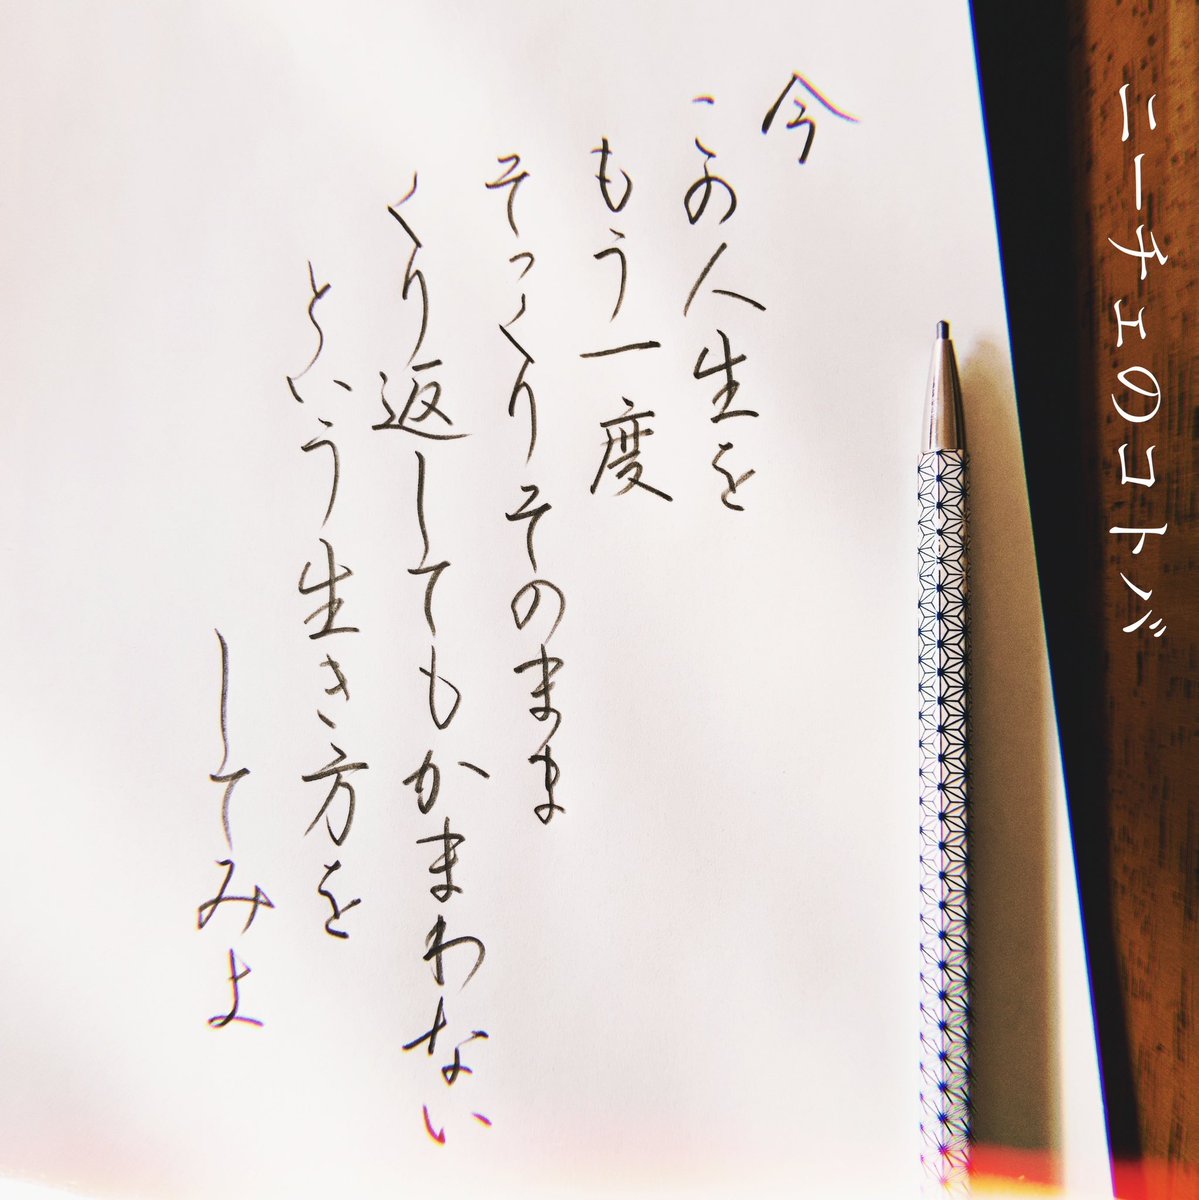 ニーチェのコトバ
今
この人生を
もう一度
そっくりそのまま
くり返してもかまわない
という生き方を
してみよ